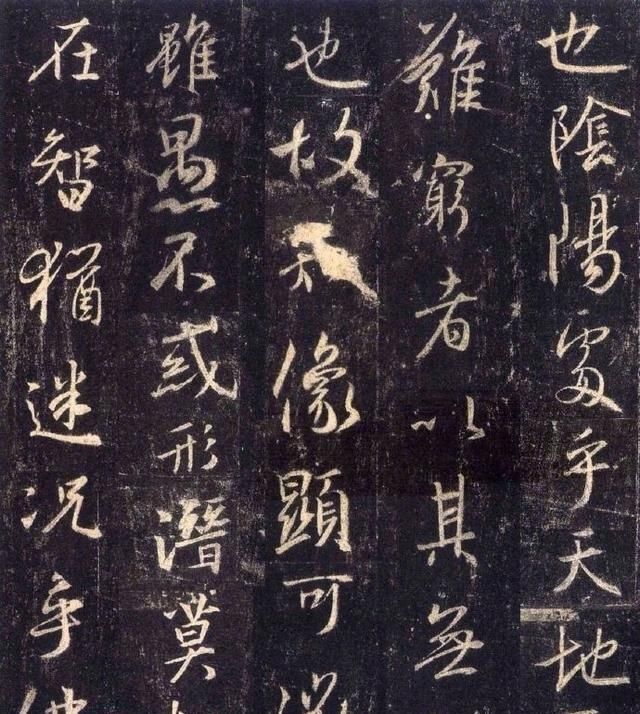 也陰陽處乎天地
難窮者以其無
也故知像顯可
雖愚不惑形潛莫
在智猶迷況乎佛